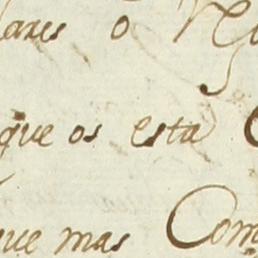 ares o
que os esta
que mas Com